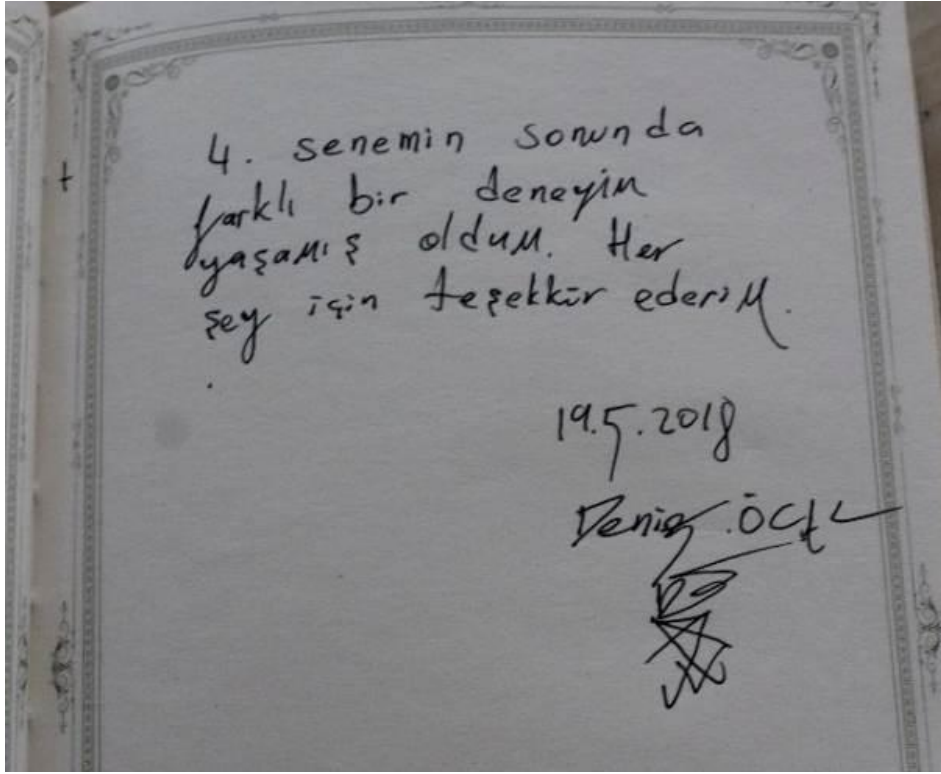 4. senemin sonunda
farklı bir deneyim
yaşamış oldum. Her
şey için teşekkür ederim.
.
19.5.2018
Deniz